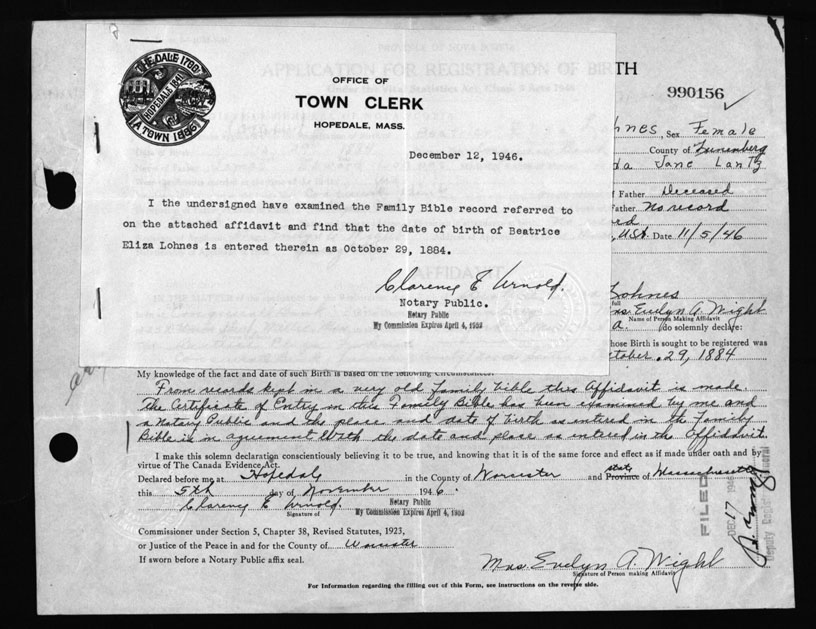 THE DALE 1700
HOPEDALE 1841
A TOWN 1886
OFFICE OF
TOWN CLERK
HOPEDALE, MASS.
December 12, 1946.
I the undersigned have examined the Family Bible record referred to
on the attached affidavit and find that the date of birth of Beatrice
Eliza Lohnes is entered therein as October 29, 1884.
Clarence E Arnold.
Notary Public.
Notary Public
My Commission Expires April 4, 1952
APPLICATION FOR REGISTRATION OF BIRTH
990156
hnes, Sex Female
County of Lunenberg
da Jane Lantz
Father Deceased
ather No record
USA. Date 11/5/46
AFFIDAVIT
Lohnes
Mrs. Evelyn A. Wight
Name of Person Making Affidavit
a. do solemnly declare:
hose Birth is sought to be registered was
October 29, 1884
My knowledge of the fact and date of such Birth is based on the following Circumstances:
From records kept in a very old family bible this Affidavit is made.
The Certificate of Entry in this Family Bible has been examined by me and
a Notary Public and the place and date of birth as entered in the Family
Bible is in agreement with the date and place as entered in the Affidavit.
I make this solemn declaration conscientiously believing it to be true, and knowing that it is of the same force and effect as if made under oath and by
virtue of The Canada Evidence Act.
Declared before me at Hopedale in the County of Worcester and state Province of Massachusetts
this 5th day of November 1946.
Clarence E Arnold.
Signature of
Notary Public
My Commission Expires April 4, 1952
Commissioner under Section 5, Chapter 38, Revised Statutes, 1923,
or Justice of the Peace in and for the County of Worcester
If sworn before a Notary Public affix seal.
Mrs. Evelyn A. Wight
Signature of Person making Affidavit
For Information regarding the filling out of this Form, see instructions on the reverse side.
FILED
DEC 17 1946
Deputy Registrar General